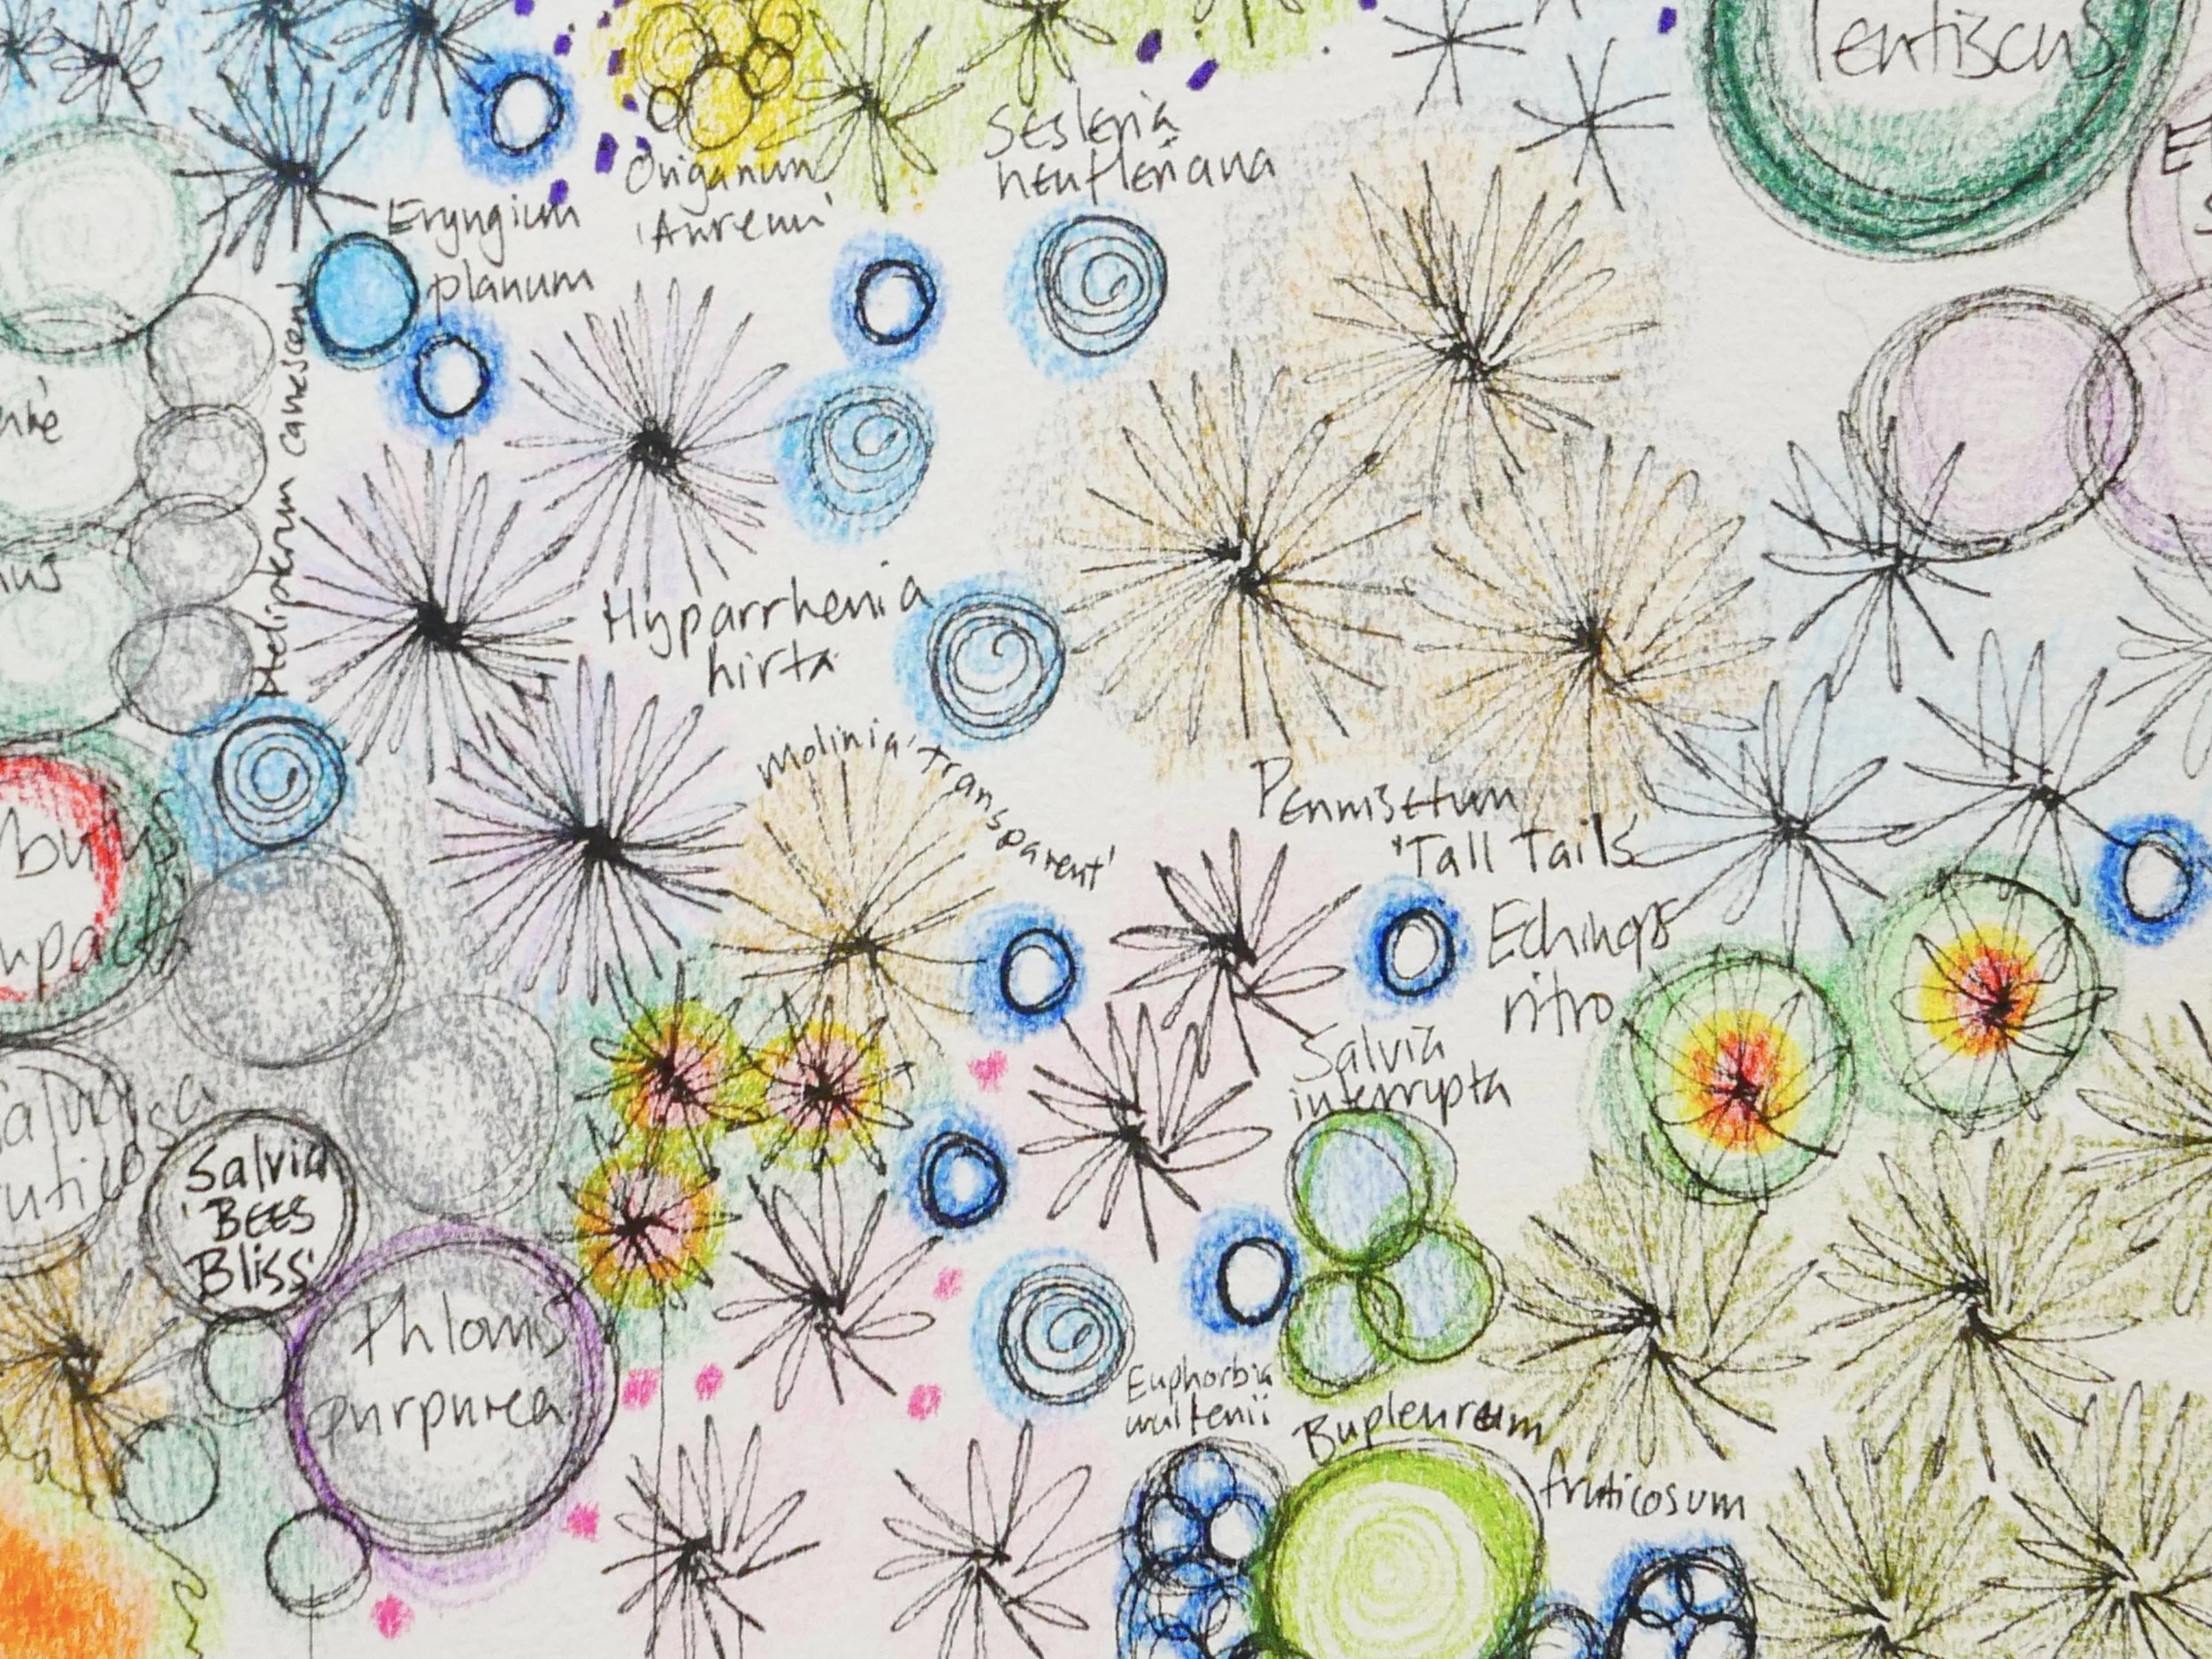 lentiscus
Sesleria
heufleriana
Origanum
'Aureum'
Eryngium
planum
Helipterum canescens
Hyparrhenia
hirta
Molinia 'transparent'
Pennisetum
'Tall Tails'
Echinops
ritro
Salvia
interrupta
Salvia
'BEES
Bliss'
Phlomis
purpurea
Euphorbia
wulfenii
Bupleurum
fruticosum